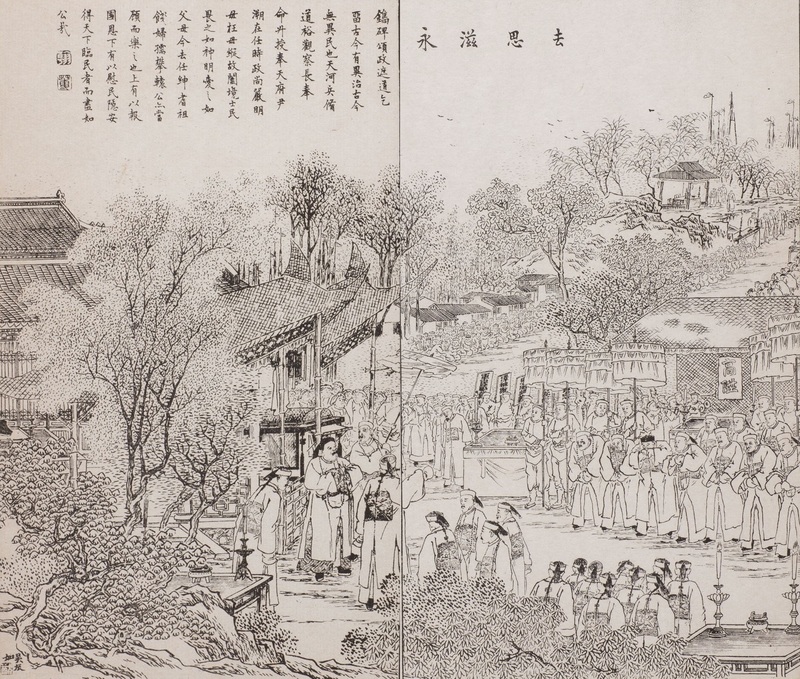 去思滋永
鐫碑頌政遮道乞
留古今有異治古今
無異民也天河兵備
道裕觀察長奉
命升授奉天府尹
溯在任時政尚嚴明
毋枉毋縱故闔境士民
畏之如神明愛之如
父母今去任紳耆祖
餞婦孺攀轅公亦當
顧而樂之也上有以報
國恩下有以慰民隱安
得天下臨民者而盡如
公哉
吳友
如